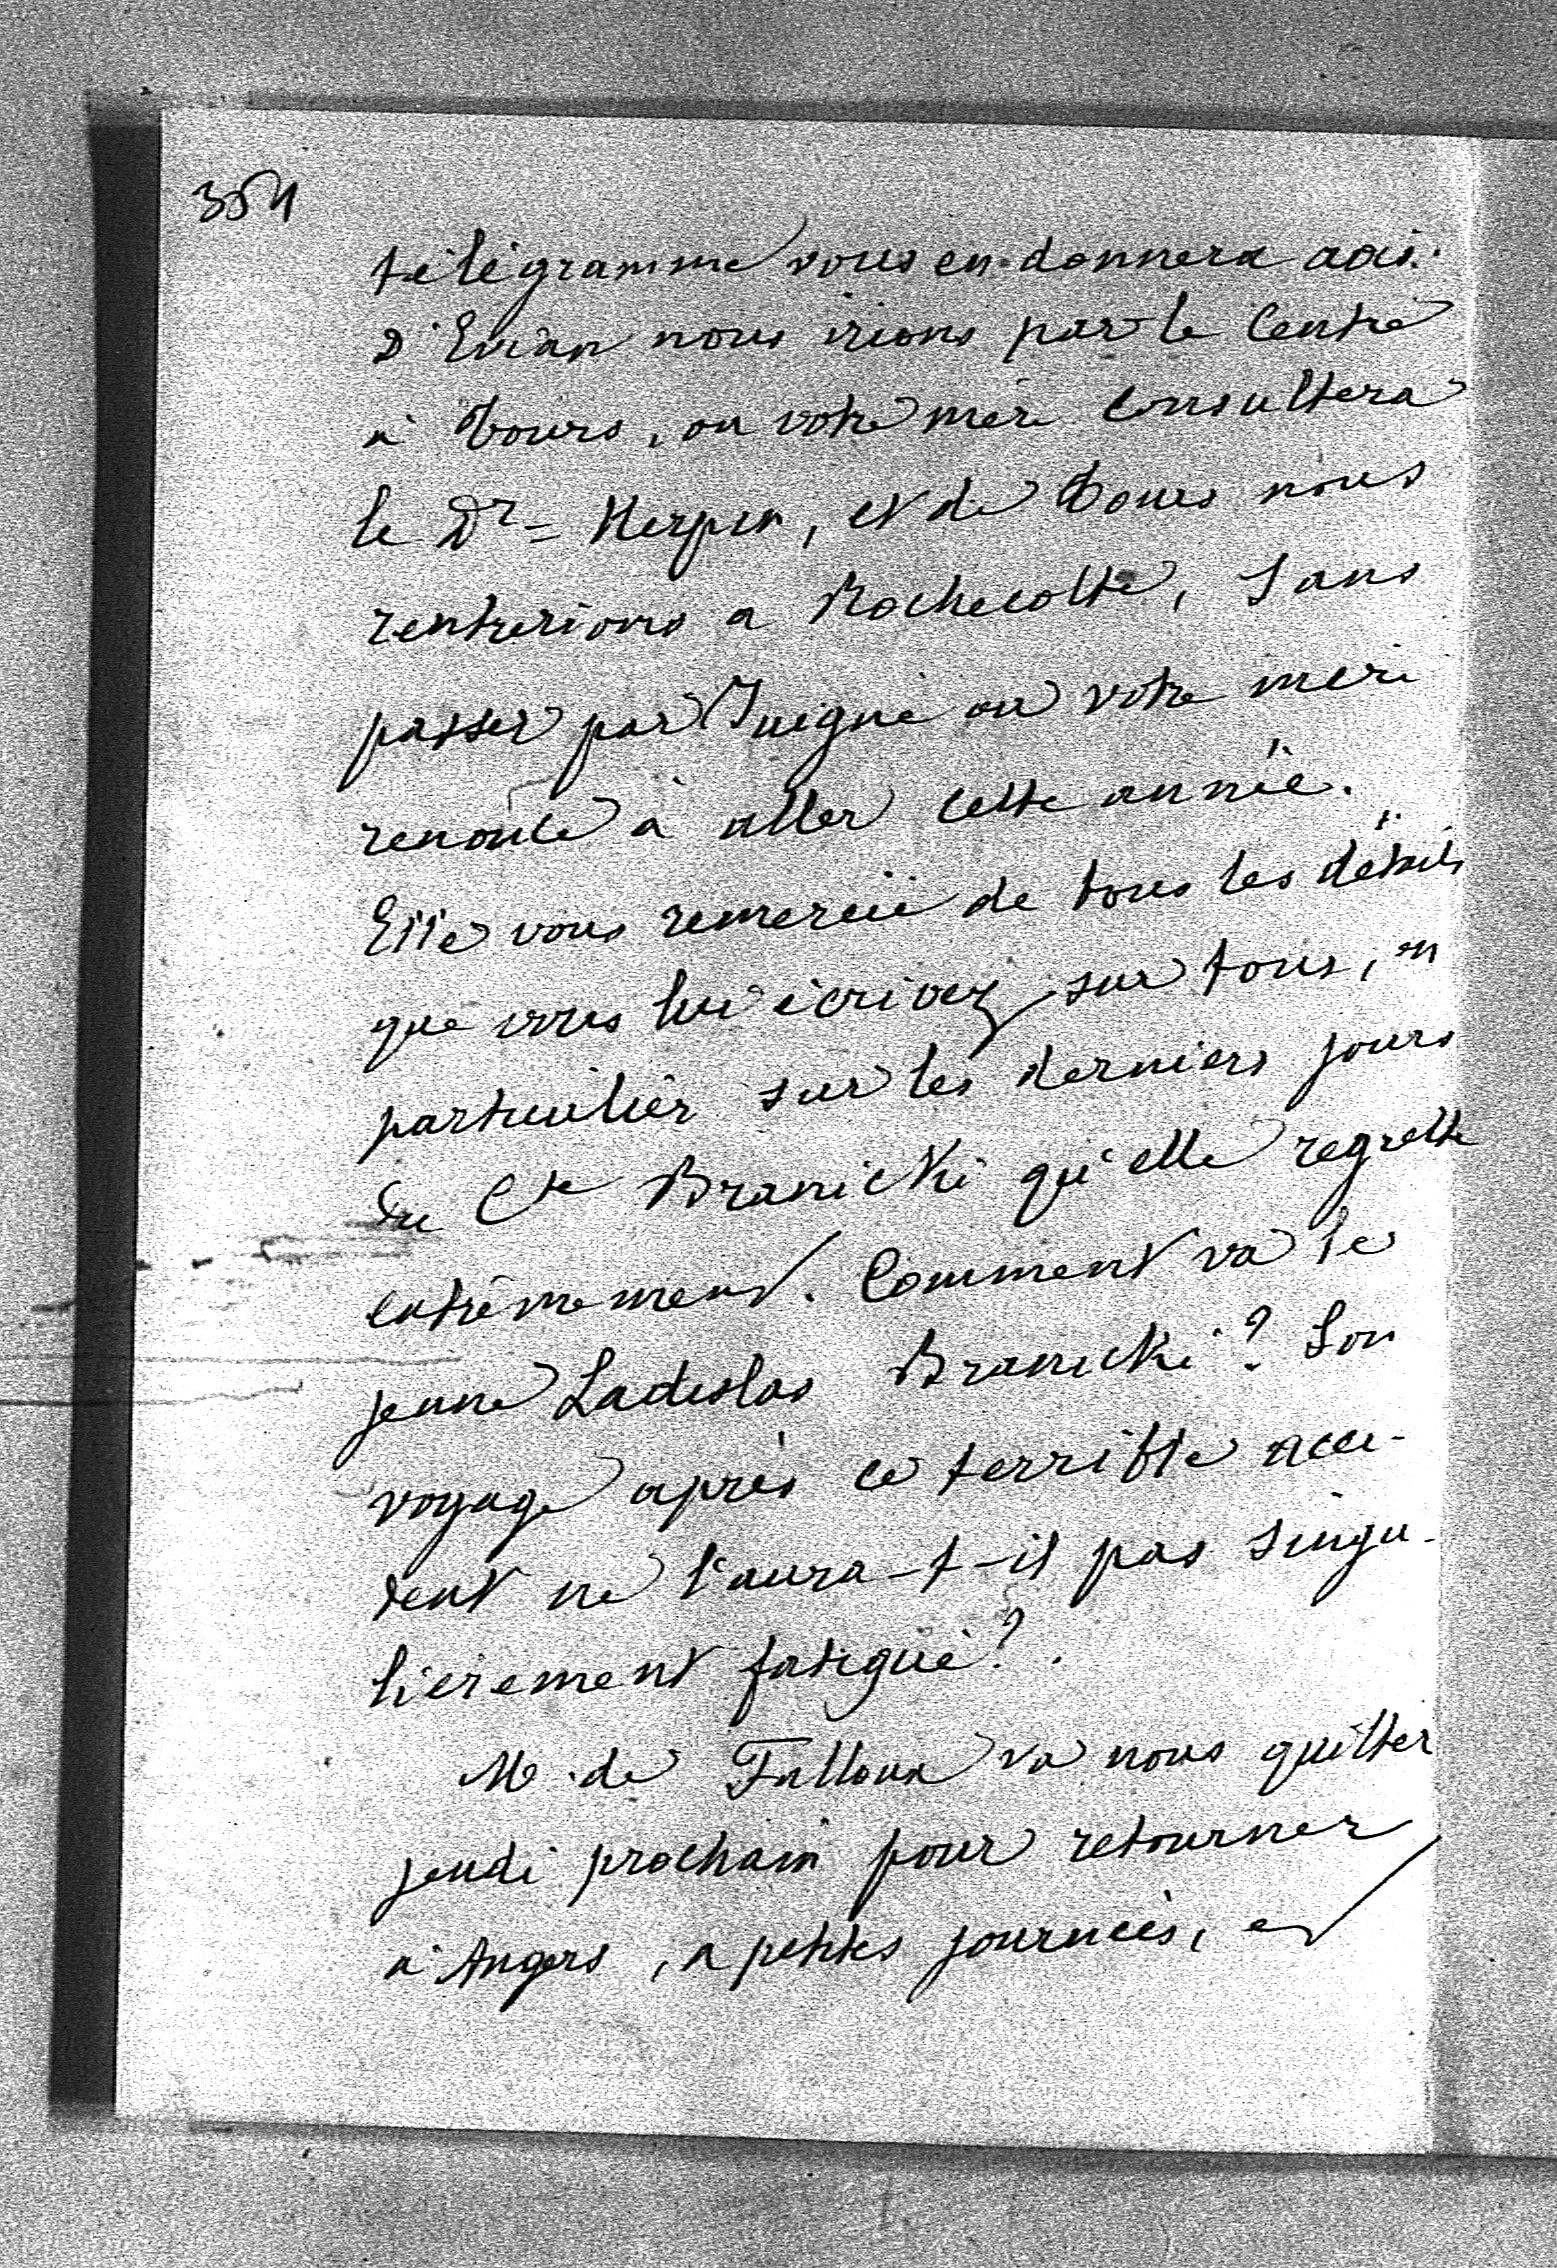 354
télégramme vous en donnera avis.
D'Evian nous irions par le Centre
à Tours, ou votre mère consultera
le Dr Herpin, et de Tours nous
rentrerions a Rochecotte, sans
passer par Juigné ou votre mère
renonce à aller cette année.
Elle vous remercie de tous les détails
que vous lui écrivez sur tous, en
particulier sur les derniers jours
du Cte Branicki qu'elle regrette
extrêmement. Comment va le
jeune Ladislas Branicki? Son
voyage après ce terrible acci-
dent ne l'aura-t-il pas singu-
lièrement fatigué?.
M. de Falloux va nous quitter
jeudi prochain pour retourner
à Angers, a petites journées, et